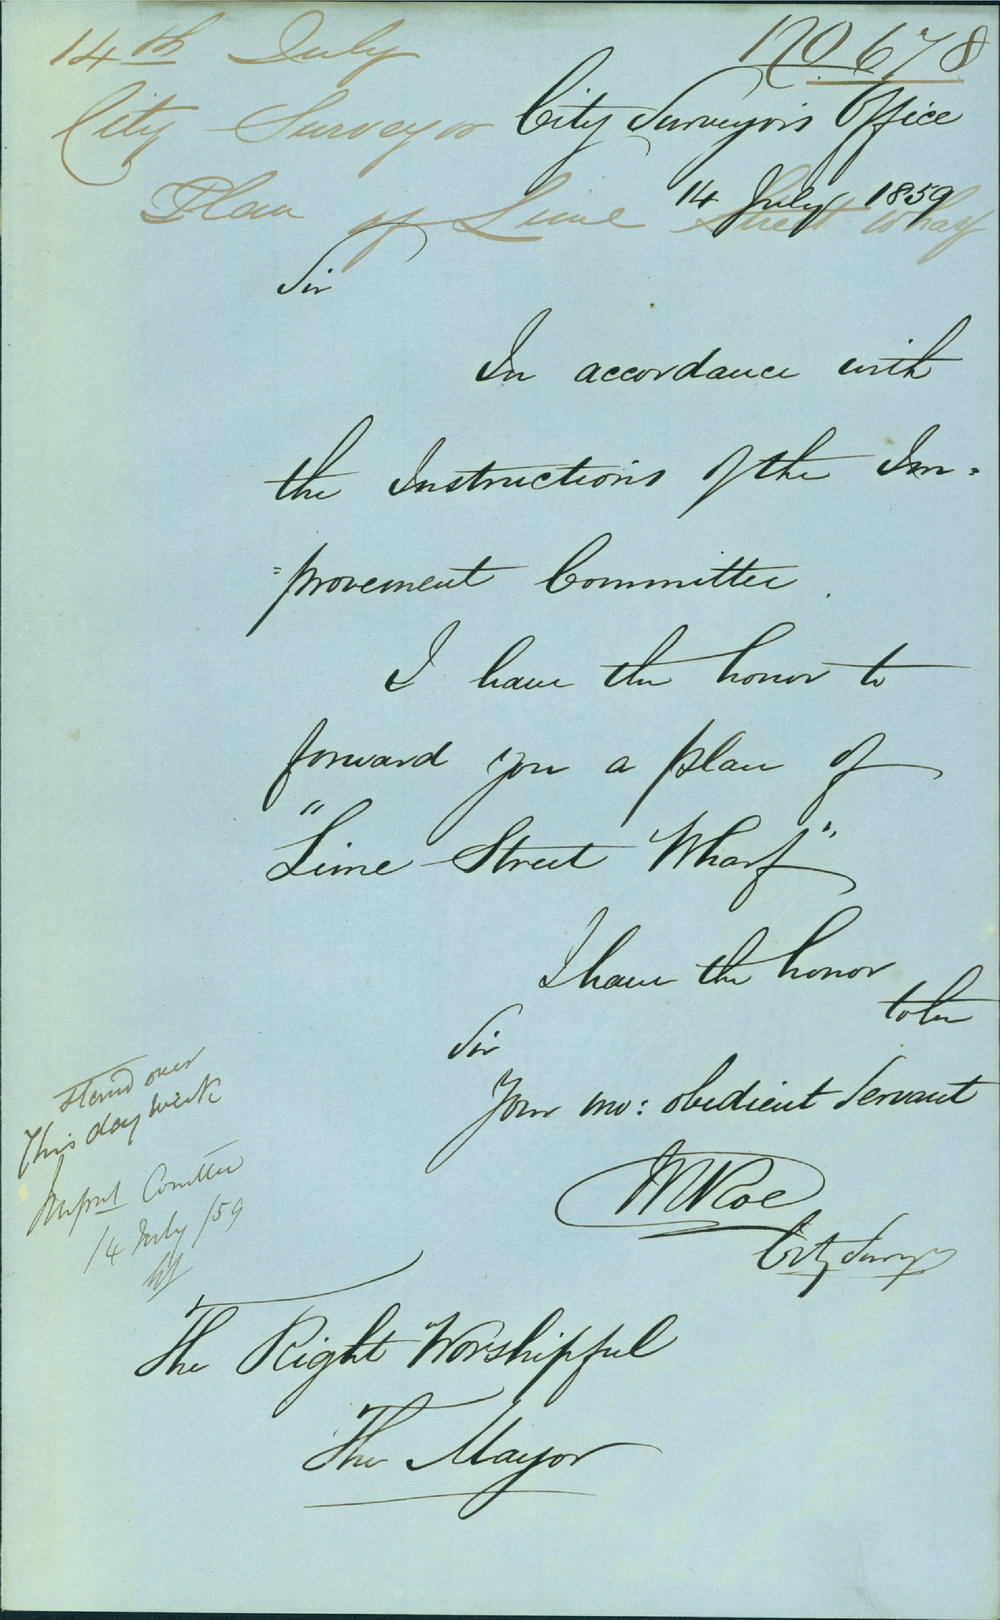 14th July
No 678
City Surveyor
City Surveyor's Office
Plan of Lime Street Wharf
14 July 1859
Sir
In accordance with
the Instructions of the Im=
=provement Committee.
I have the honor to
forward you a plan of
"Lime Street Wharf"
I have the honor
to be
Sir
Your mo: obedient Servant
City Survyr
Stand over
This day week
Improt Comttee
14 July /59
The Right Worshipful
The Mayor